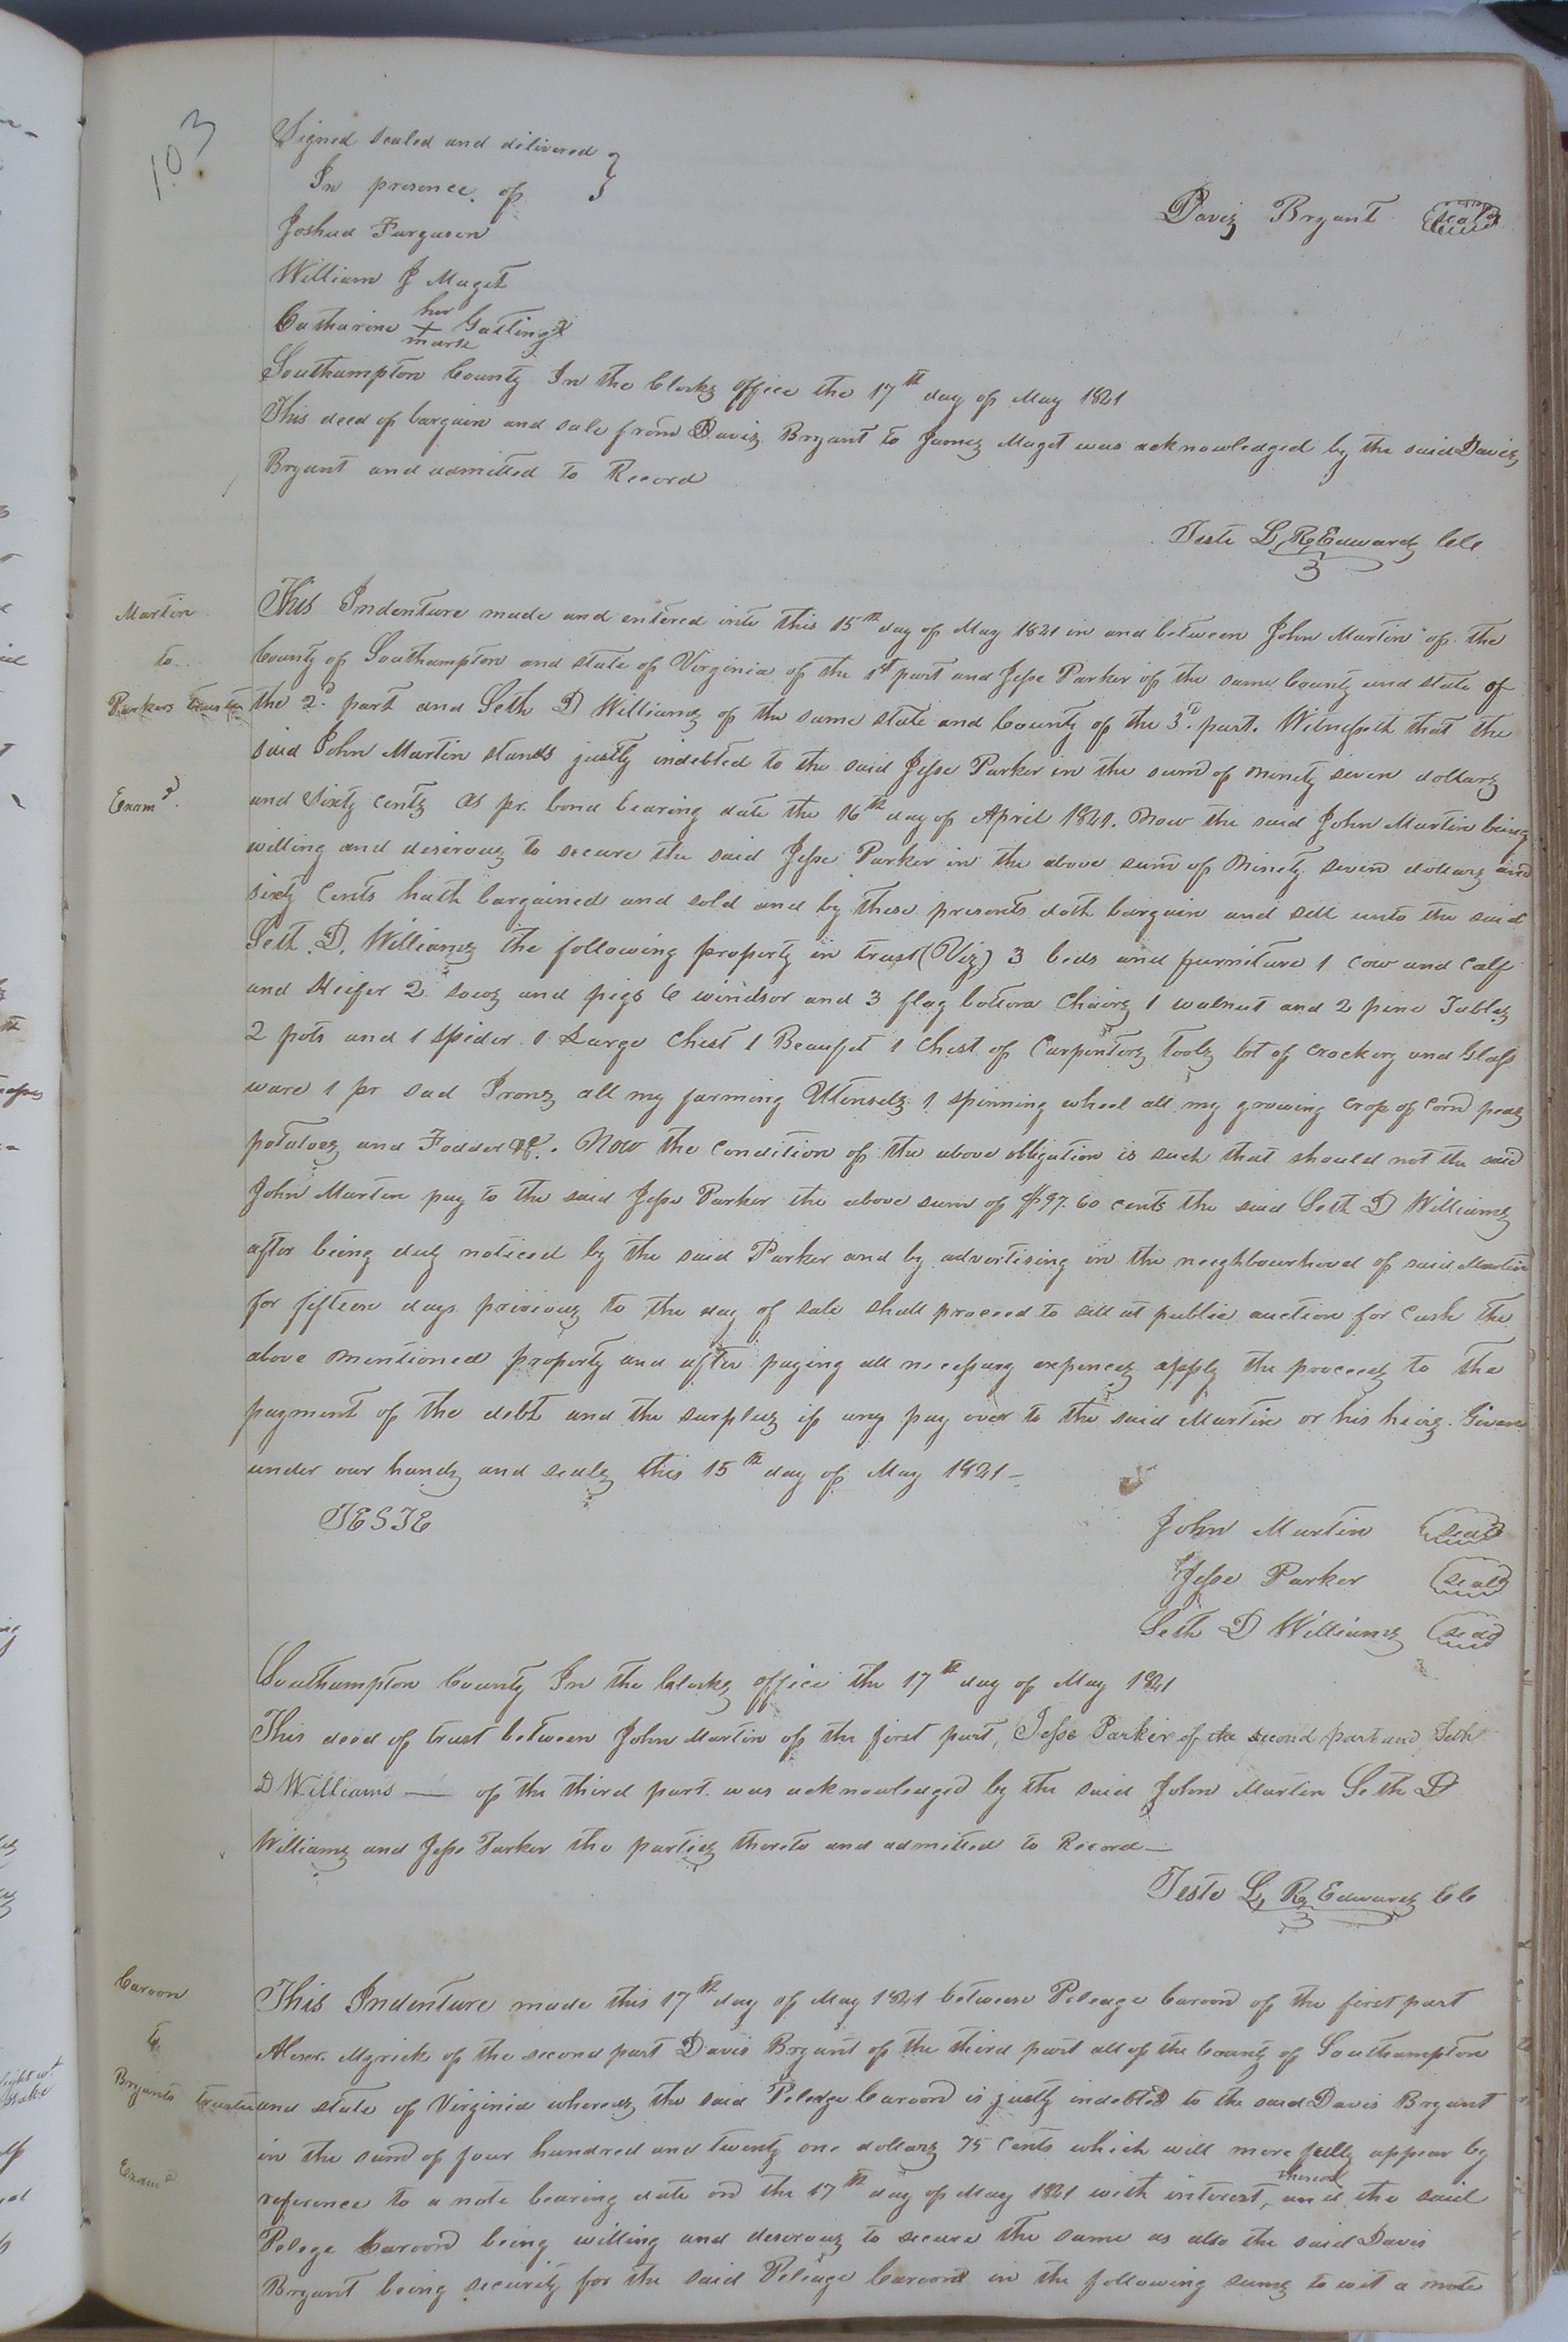 103
Signed sealed and delivered }
In presence of }
Davis Bryant seal
Joshua Ferguson
William J Maget
her
Catharine + Gatling
mark
Southampton County In the Clerks office the 17th day of May 1821
This deed of bargain and sale from Davis Bryant to James Maget was acknowledged by the said Davis
Bryant and admitted to Record
Teste L, R, Edwards CC
Martin
to
Parkers trustee
Examd.
This Indenture made and entered into this 15th day of May 1821 in and between John Martin of the
County of Southampton and state of Virginia of the 1st part and Jesse Parker of the same County and state of
the 2d. part and Seth D Williams of the same state and County of the 3d. part. Witnesseth that the
said John Martin stands justly indebted to the said Jesse Parker in the sum of Ninety seven dollars
and sixty cents as pr. bond bearing date the 16th day of April 1821. Now the said John Martin being
willing and desirous to secure the said Jesse Parker in the above sum of Ninety seven dollars and
sixty cents hath bargained and sold and by these presents doth bargain and sell unto the said
Seth. D. Williams the following property in trust (Viz) 3 beds and furniture 1 cow and calf
and Heifer 2 sows and pigs 6 windsor and 3 flag bottom Chairs 1 walnut and 2 pine Tables
2 pots and 1 spider 1 Large Chest 1 Beaufet 1 Chest of Carpenters Tools lot of crockery and Glass
ware 1 pr sad Irons all my farming Utensils 1 spinning wheel all my growing crop of corn peas
potatoes and Fodder &c. Now the condition of the above obligation is such that should not the said
John Martin pay to the said Jesse Parker the above sum of $97.60 cents the said Seth D Williams
after being duly noticed by the said Parker and by advertising in the neighbourhood of said Martin
for fifteen days previous to the day of sale shall proceed to sell at public auction for cash the
above mentioned property and after paying all necessary expences apply the proceeds to the
payment of the debt and the surplus if any pay over to the said Martin or his heirs. Given
under our hands and seals this 15th day of May 1821 -
TESTE
John Martin seal
Jesse Parker seal
Seth D Williams seal
Southampton County In the Clerks office the 17th day of May 1821
This deed of trust between John Martin of the first part, Jesse Parker of the second part and Seth
D Williams — of the third part was acknowledged by the said John Martin Seth D
Williams and Jesse Parker the parties thereto and admitted to Record —
Teste L, R, Edwards CC
Caroon
to
Bryants trustee
Examd
This Indenture made this 17th day of May 1821 between Peleage Caroon of the first part
Alexr. Myrick of the second part Davis Bryant of the third part all of the County of Southampton
and state of Virginia whereas the said Peleage Caroon is justly indebted to the said Davis Bryant
in the sum of four hundred and twenty one dollars 75 cents which will more fully appear by
reference to a note bearing date on the 17th day of May 1821 with interest, thereon and the said
Pelege Caroon being willing and desirous to secure the same as also the said Davis
Bryant being security for the said Peleage Caroon in the following sums to wit a note